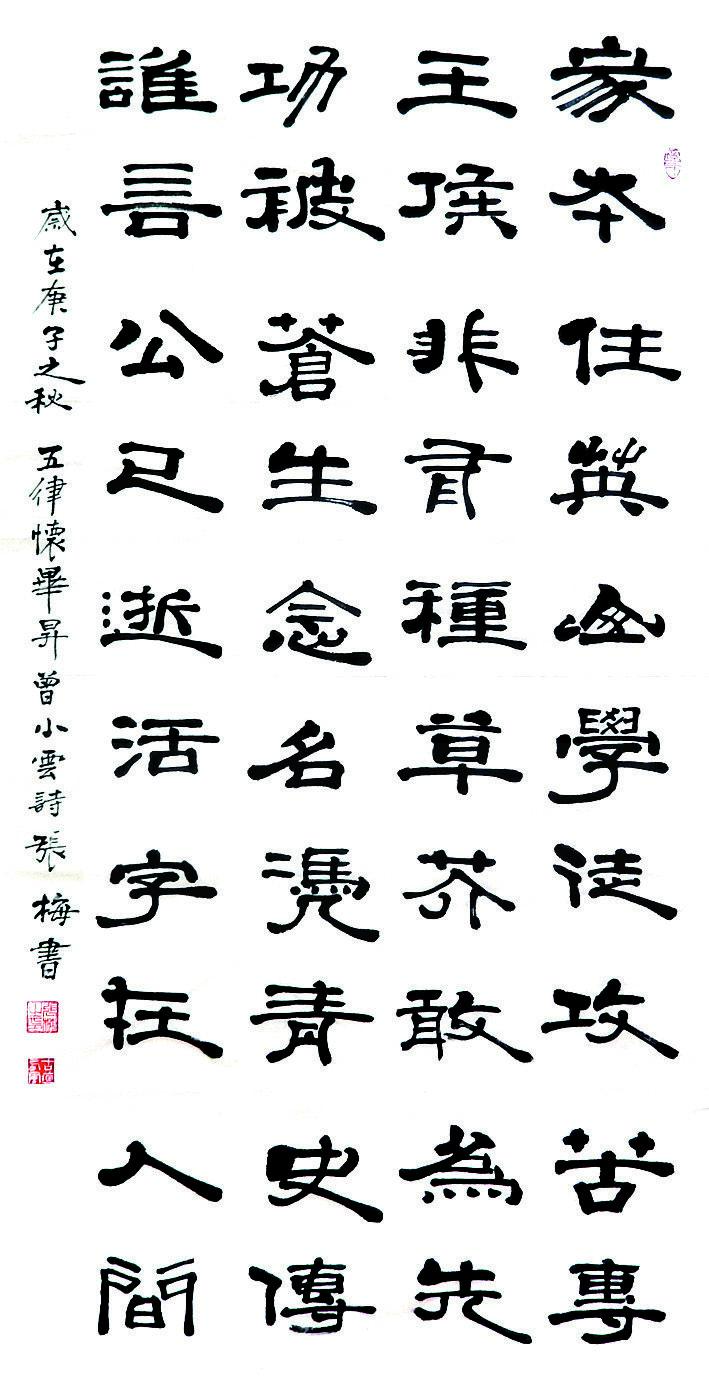 家本住英山學徒攻苦專
王侯非有種草芥敢為先
功被蒼生念名憑青史傳
誰言公已逝活字在人間
歲在庚子之秋 五律懷畢昇曾小雲詩張梅書